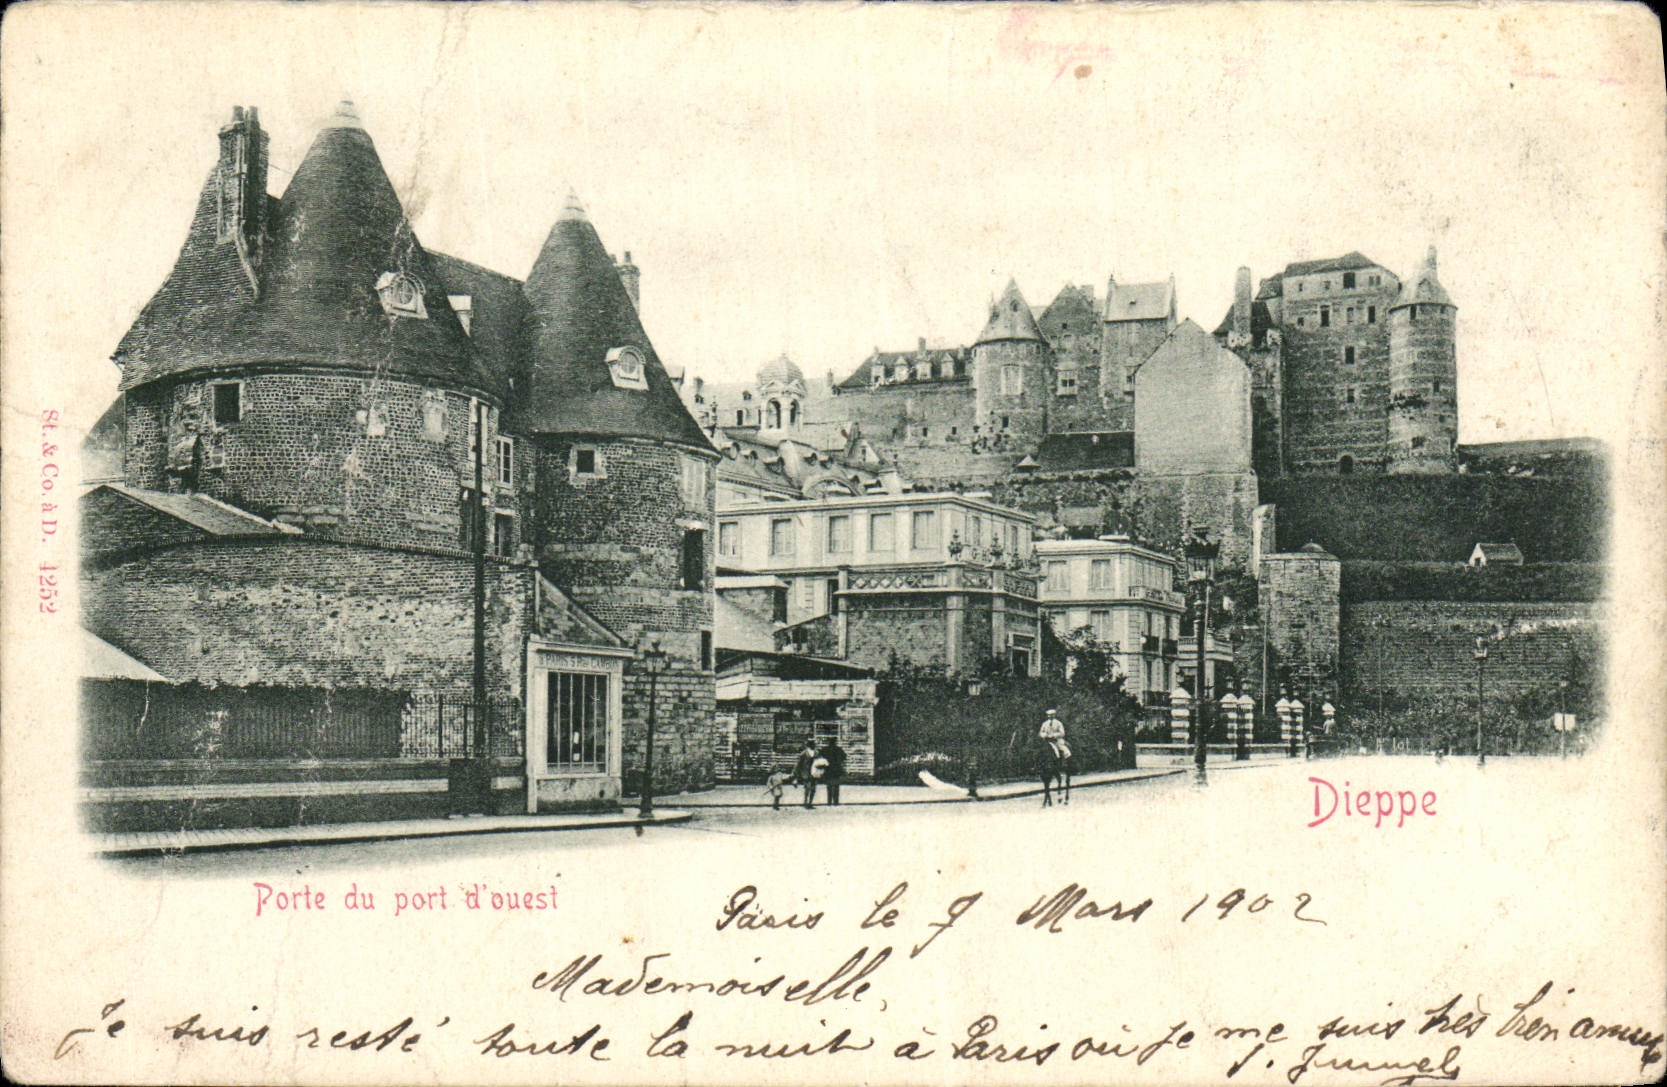 St. & Co. à D. 4252
PARIS 5 RUE CAMBON
Dieppe
Porte du port d'ouest
Paris le 7 Mars 1902
Mademoiselle,
Je suis resté toute la nuit à Paris où je me suis très bien amusé
J.